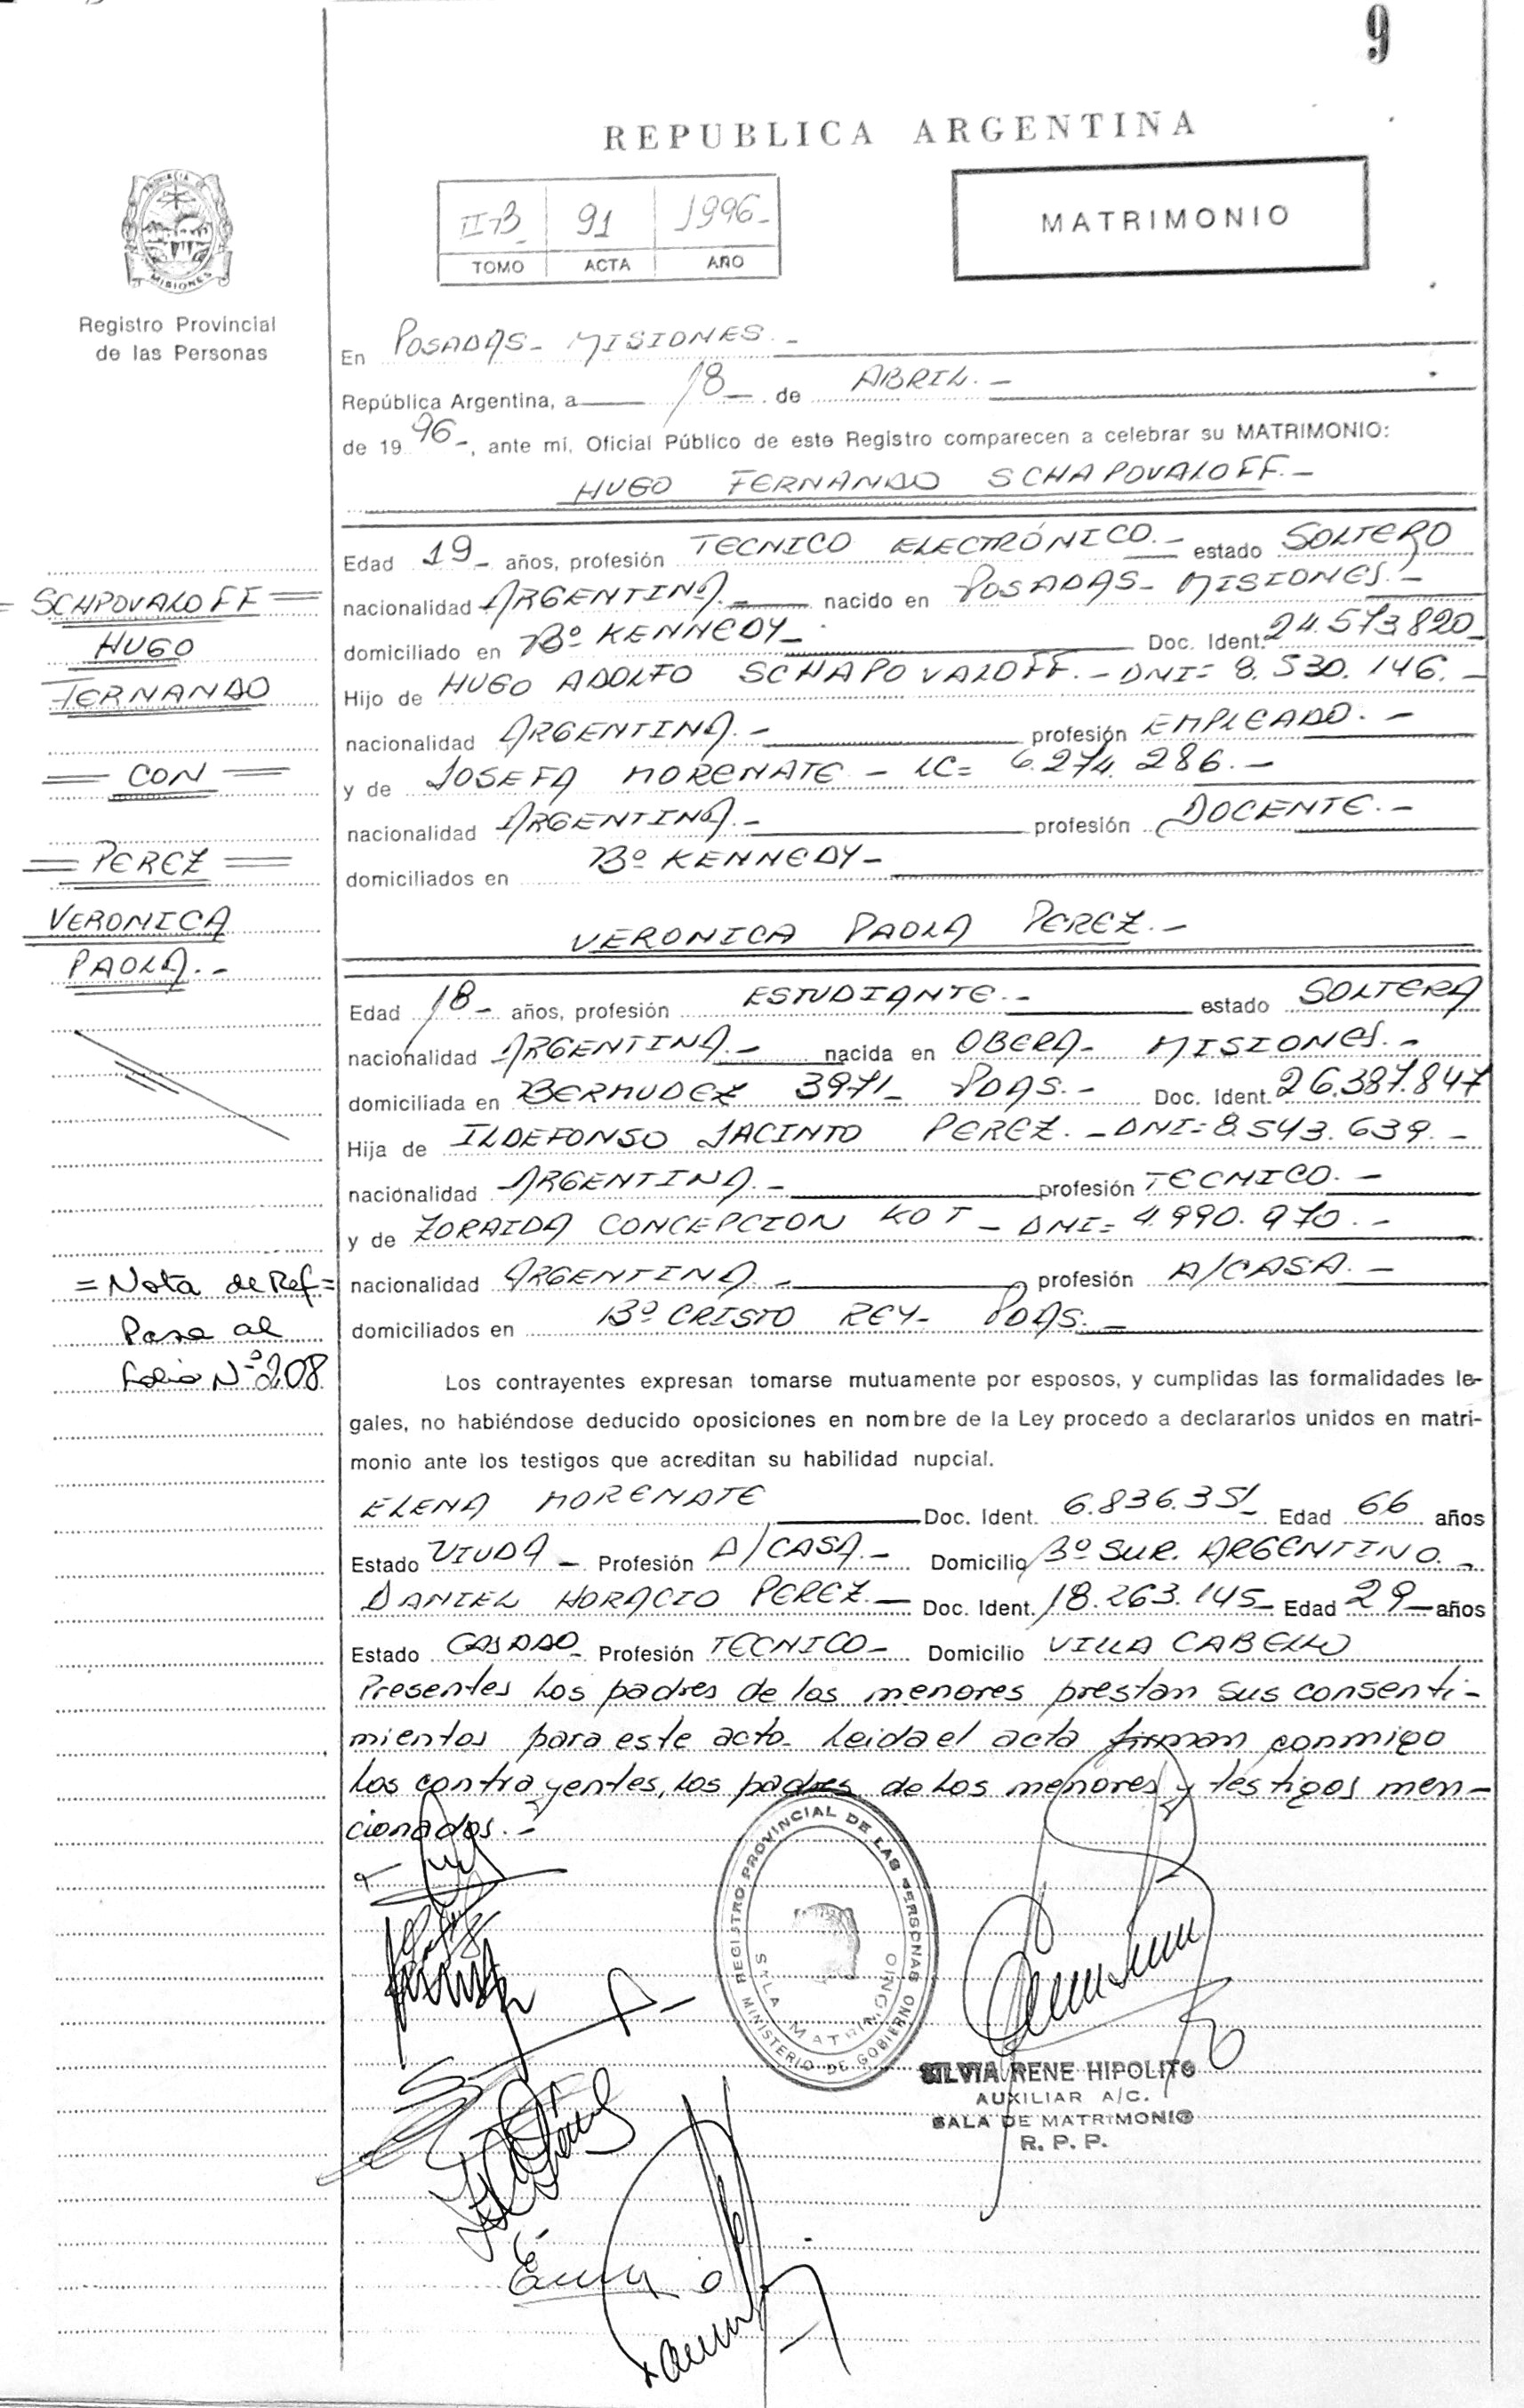 9
REPUBLICA ARGENTINA
PROVINCIA DE
MISIONES
Registro Provincial
de las Personas
II-B 91 1996-
TOMO ACTA AÑO
MATRIMONIO
En POSADAS- MISIONES.-
República Argentina, a 18- de ABRIL.-
de 1996-, ante mi, Oficial Público de este Registro comparecen a celebrar su MATRIMONIO:
HUGO FERNANDO SCHAPOVALOFF.-
Edad 19- años, profesión TECNICO ELECTRÓNICO.- estado SOLTERO
nacionalidad ARGENTINA.- nacido en POSADAS- MISIONES.-
domiciliado en Bº KENNEDY- Doc. Ident. 24.573.820-
Hijo de HUGO ADOLFO SCHAPOVALOFF.- DNI= 8.530.146.-
nacionalidad ARGENTINA.- profesión EMPLEADO.-
y de JOSEFA MORENATE - LC= 6.274.286.-
nacionalidad ARGENTINA.- profesión DOCENTE.-
domiciliados en Bº KENNEDY-
VERONICA PAOLA PEREZ.-
Edad 18- años, profesión ESTUDIANTE.- estado SOLTERA
nacionalidad ARGENTINA.- nacida en OBERA- MISIONES.-
domiciliada en BERMUDEZ 3971- PDAS.- Doc. Ident. 26.387.847
Hija de ILDEFONSO JACINTO PEREZ.- DNI= 8.543.639.-
nacionalidad ARGENTINA.- profesión TECNICO.-
y de ZORAIDA CONCEPCION KOT - DNI= 4.990.970.-
nacionalidad ARGENTINA.- profesión A/CASA.-
domiciliados en Bº CRISTO REY- PDAS.-
Los contrayentes expresan tomarse mutuamente por esposos, y cumplidas las formalidades le-
gales, no habiéndose deducido oposiciones en nombre de la Ley procedo a declararlos unidos en matri-
monio ante los testigos que acreditan su habilidad nupcial.
ELENA MORENATE Doc. Ident. 6.836.351- Edad 66 años
Estado VIUDA- Profesión A/CASA.- Domicilio Bº SUR. ARGENTINO.-
DANIEL HORACIO PEREZ.- Doc. Ident. 18.263.145- Edad 29- años
Estado CASADO- Profesión TECNICO- Domicilio VILLA CABELLO
Presentes los padres de los menores prestan sus consenti-
mientos para este acto- Leida el acta firman conmigo
los contrayentes, los padres de los menores y testigos men-
cionados.-
=SCHPOVALOFF=
HUGO
FERNANDO
= CON =
= PEREZ =
VERONICA
PAOLA.-
=Nota de Ref=
Pasa al
folio Nº 208
REGISTRO PROVINCIAL DE LAS PERSONAS
SALA MATRIMONIO
MINISTERIO DE GOBIERNO
SILVIA RENE HIPOLITO
AUXILIAR A/C.
SALA DE MATRIMONIO
R. P. P.